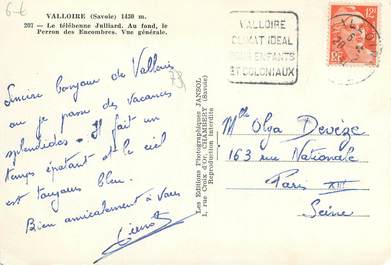 6-€
VALLOIRE (Savoie) 1430 m.
201 - Le télébenne Julliard. Au fond, le
Perron des Encombres. Vue générale.
73
Sincère bonjour de Valloire
où je passe des vacances
splendides - Il fait un
temps épatant et le ciel
est toujours bleu.
Bien amicalement à vous
Les Editions Photographiques JANSOL
1, rue Croix d'Or, CHAMBERY (Savoie)
Reproduction interdite
VALLOIRE
CLIMAT IDEAL
POUR ENFANTS
ET COLONIAUX
12F
RF
Mlle Olga Devèze
163 rue Nationale
Paris XIII
Seine